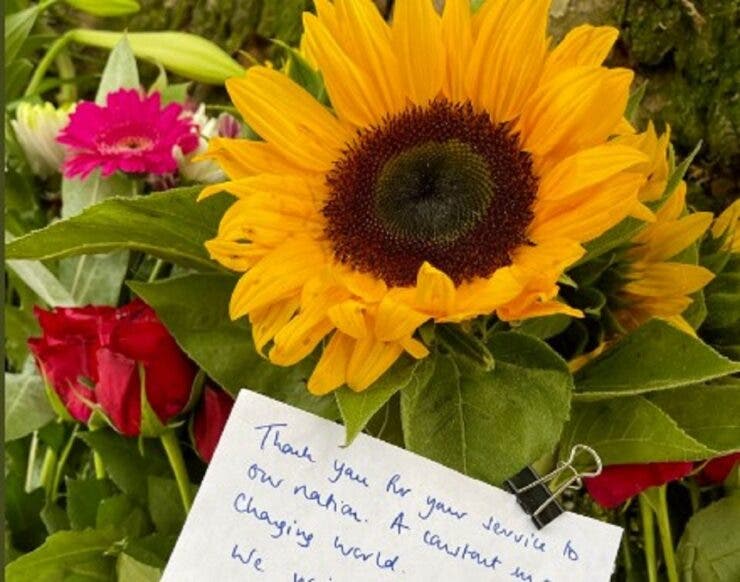 Thank you for your service to
our nation. A constant in a
Changing world.
We